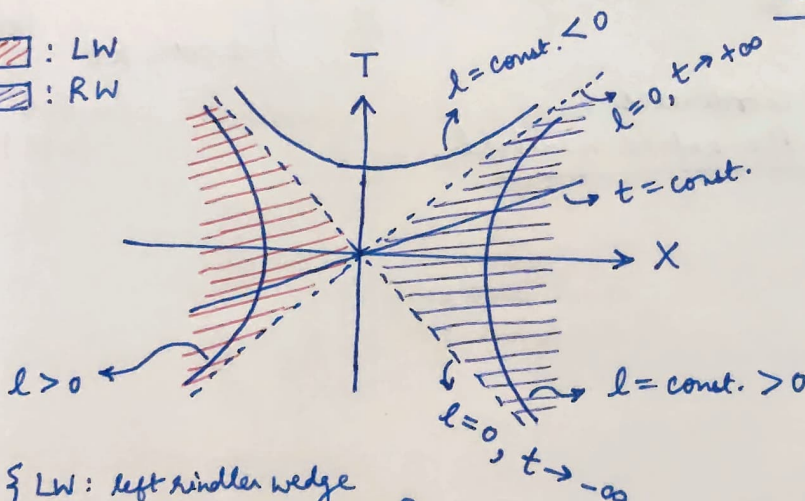 : LW
: RW
T
l = const. < 0
l = 0, t → +∞
t = const.
X
l > 0
l = const. > 0
l = 0, t → -∞
{ LW : left rindler wedge